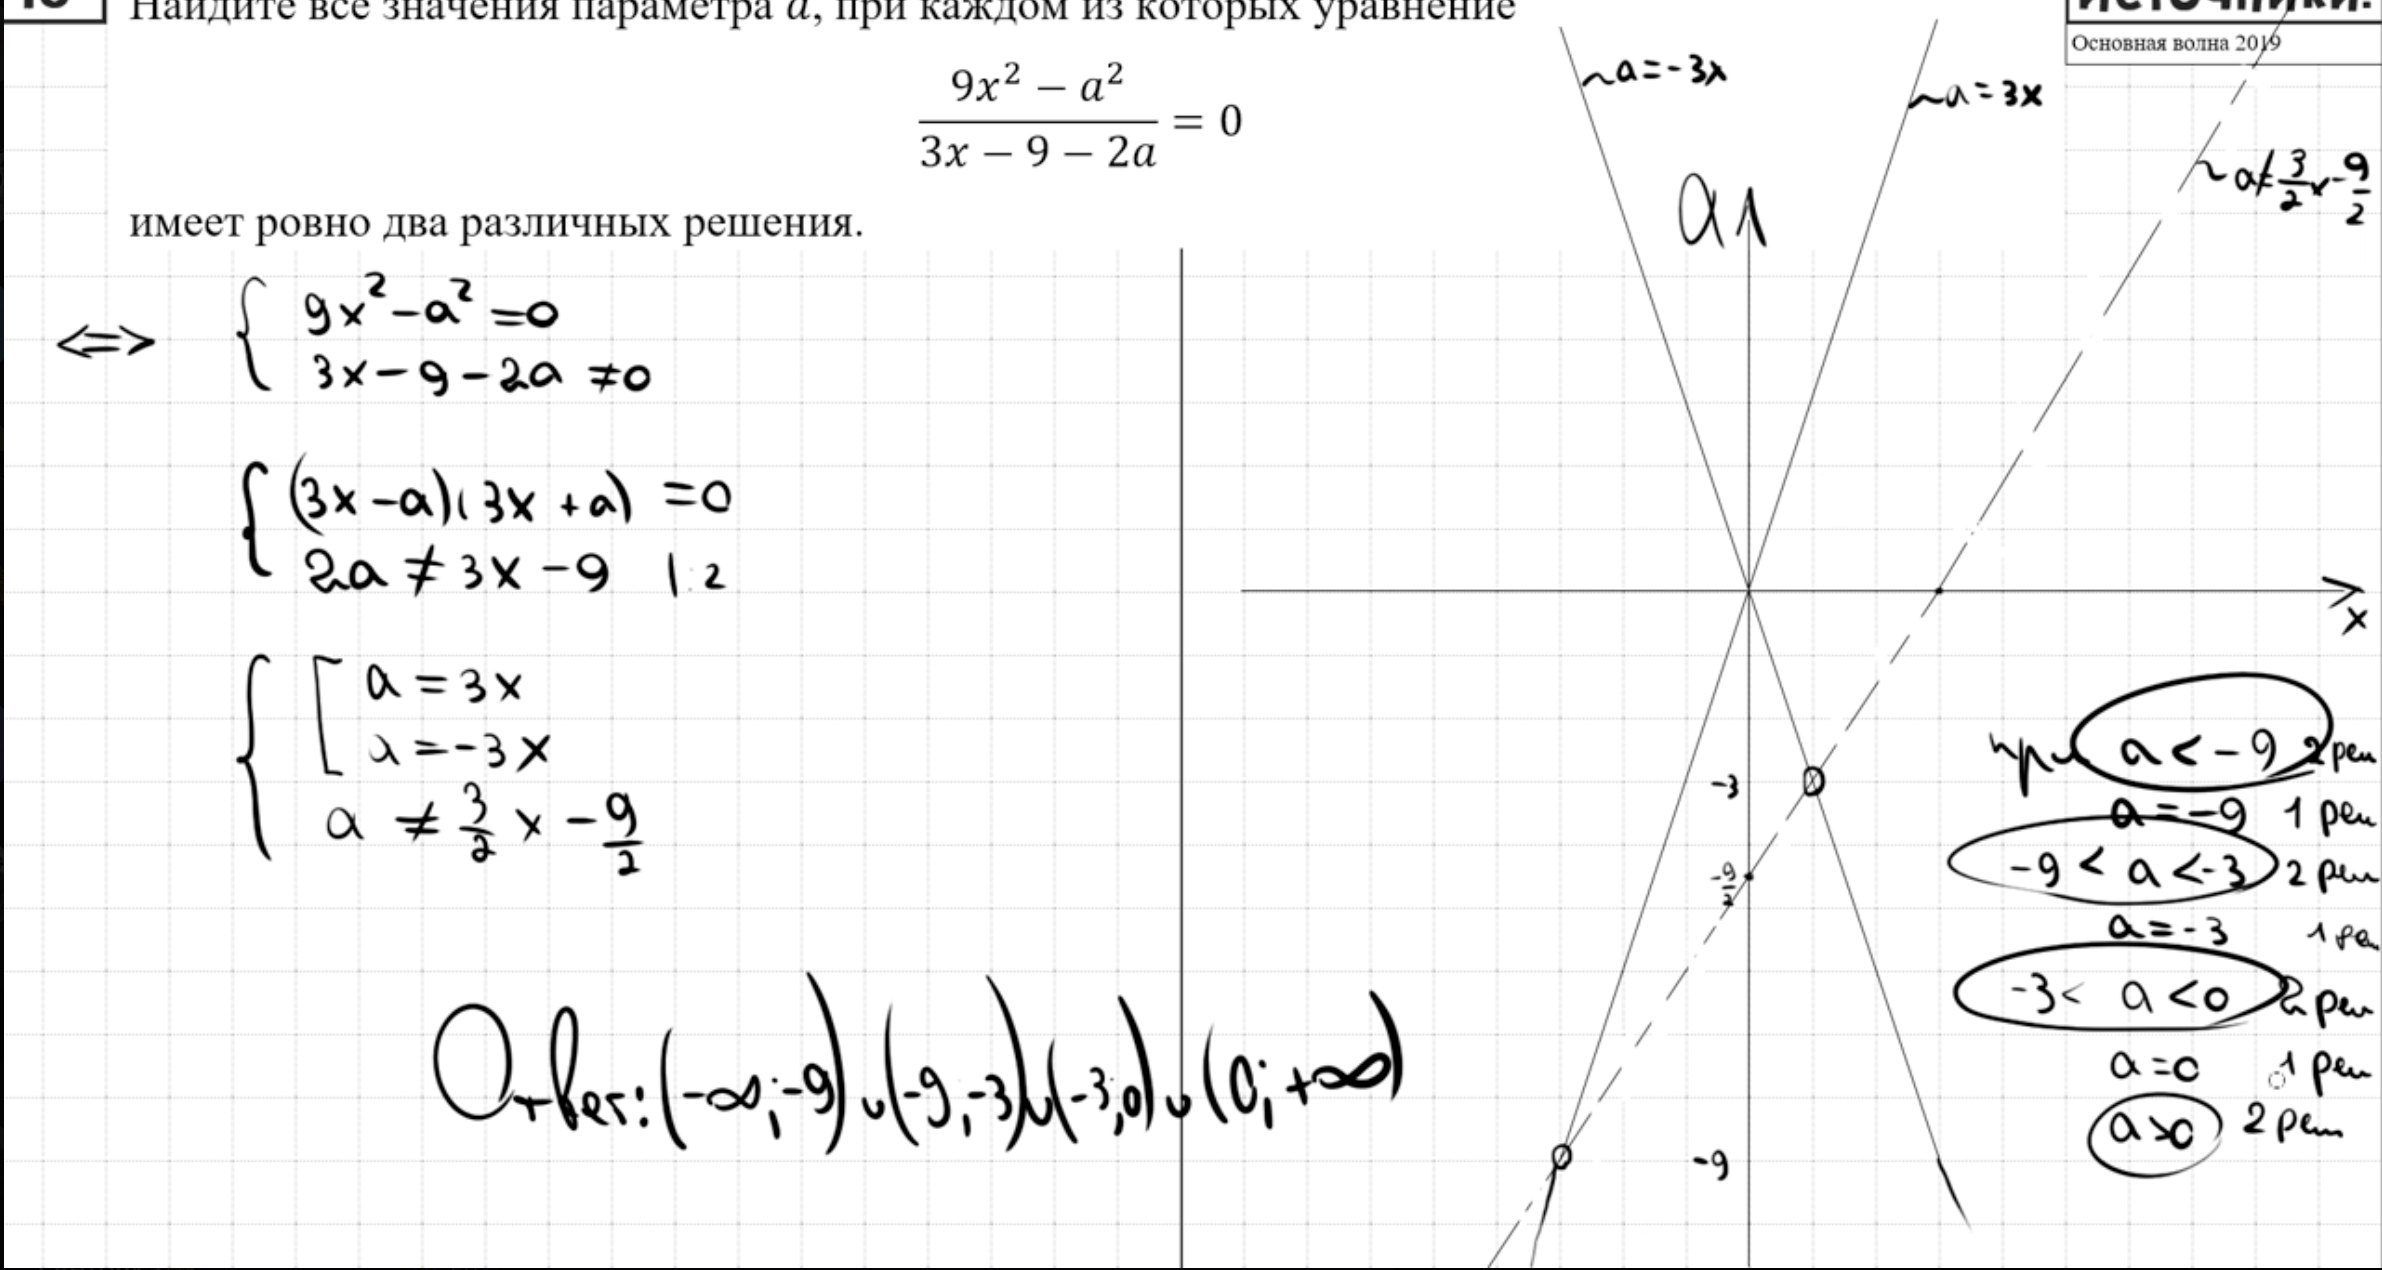 Найдите все значения параметра a, при каждом из которых уравнение
ИСТОЧНИКИ:
Основная волна 2019
9x² − a²
3x − 9 − 2a
= 0
имеет ровно два различных решения.
⟺ { 9x² − a² = 0
3x − 9 − 2a ≠ 0
{ (3x − a)(3x + a) = 0
2a ≠ 3x − 9 | : 2
{ [ a = 3x
a = −3x
a ≠ 3/2 x − 9/2
Ответ: (−∞; −9) ∪ (−9; −3) ∪ (−3; 0) ∪ (0; +∞)
~ a = −3x
~ a = 3x
~ a ≠ 3/2 x − 9/2
a
x
−3
−9/2
−9
при a < −9 2 реш
a = −9 1 реш
−9 < a < −3 2 реш
a = −3 1 реш
−3 < a < 0 2 реш
a = 0 1 реш
a > 0 2 реш